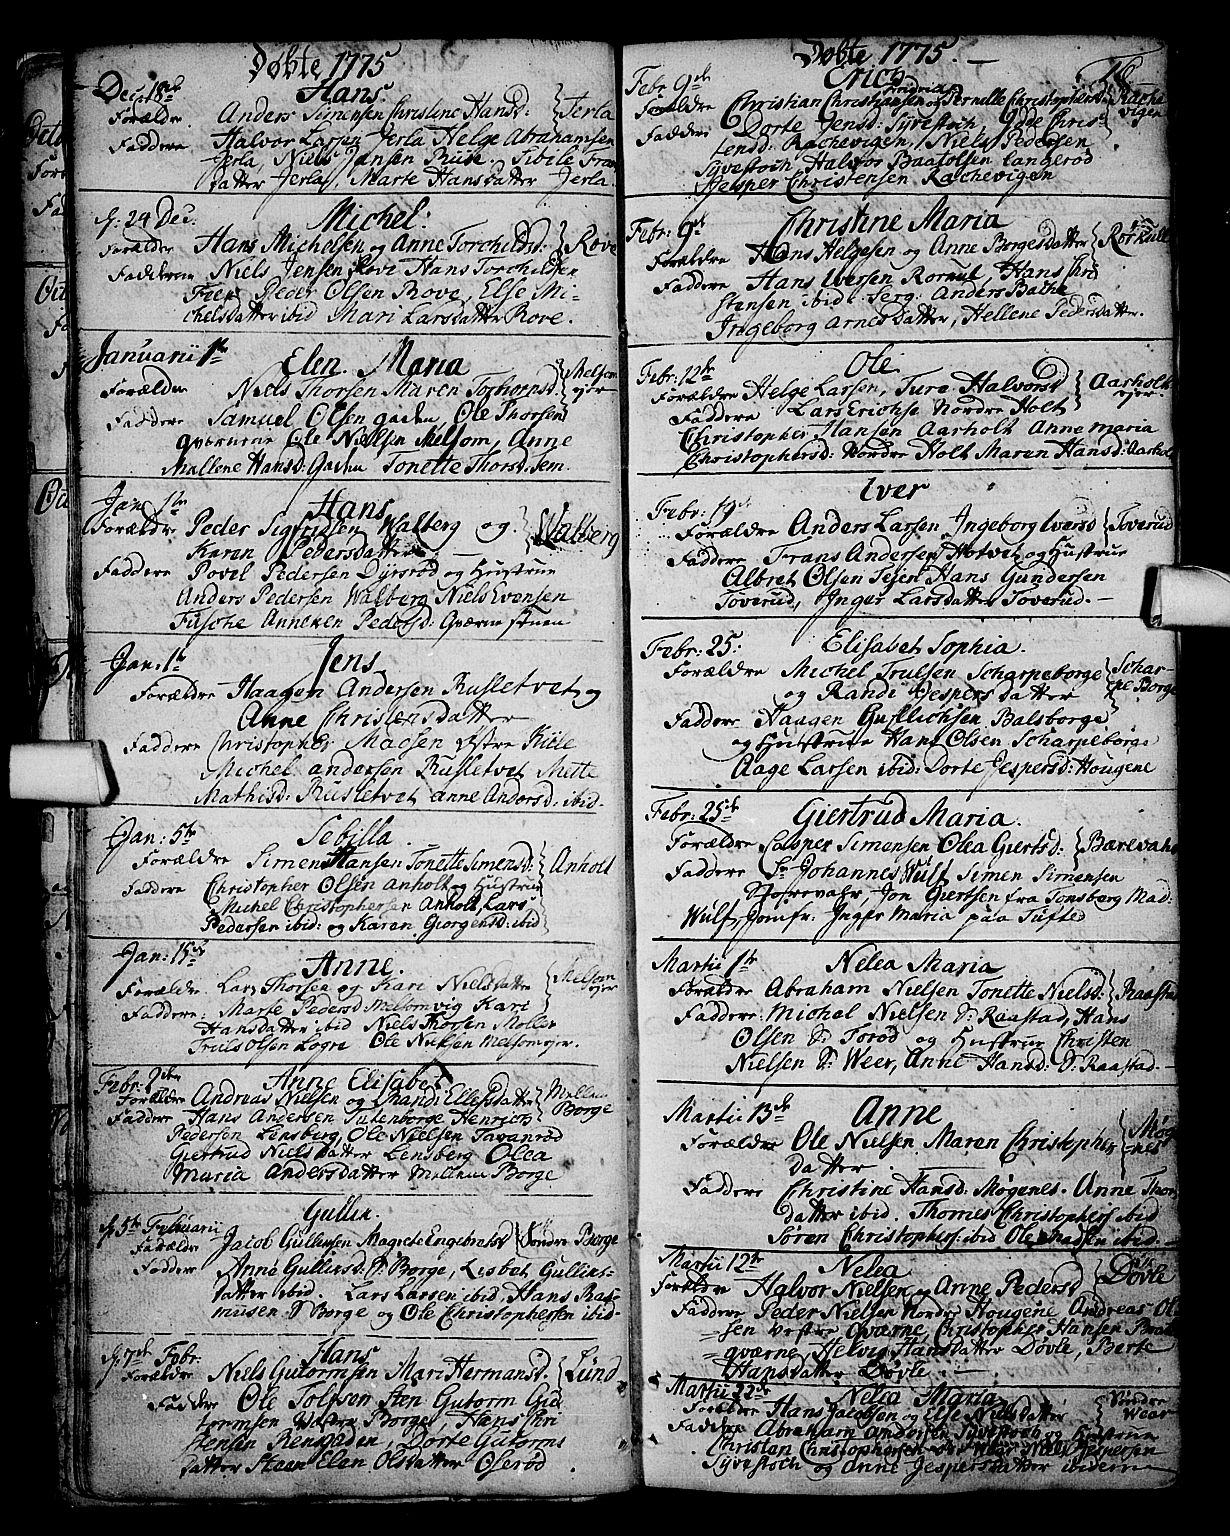 Døbte 1775
Dec: 18de Hans.
Forældre Anders Simensen Christine Hansd: Jerla
Faddere Halvor Larsen Jerla Helge Abrahamsen
Jerla Niels Jansen Buse. Sibile Frans
datter Jerla, Marte Hansdatter Jerla
24 Dec. Michel.
Forældre Hans Michelsen og Anne Torchelsd. Rove
Fadderne Niels Jensen Rovi Hans Torchelsen
Peder Olsen Rove, Else Mi-
chelsdatter ibid Mari Larsdatter Rove.
Januarii 1te Elen Maria
Forældre Niels Thorsen Maren Torborsd. Melsom
Faddere Samuel Olsen gaden Ole Thorsen
qværnene Ole Nielsen Melsom, Anne
Mallene Hansd: Gaden Tonette Thorsd: Sem.
Jan: 1te Hans
Forældre Peder Sigvridsen Walberg og Walberg
Karen Pedersdatter
Faddere Povel Pedersen Dyrsrød og Hustrue
Anders Pedersen Walberg Niels Evensen
Fusche Anneken Pedersd: Qværne stuen
Jan: 1te Jens
Forældre Haagen Andersen Rusletvet og
Anne Christensdatter
Faddere Christopher Madsen østre Kiile
Michel andersen Rusletvet Mette
Mathisd: Rusletvet anne Andersd: ibid.
Jan: 5te Sebilla.
Forældre Simen Hansen Tonette Simensd: Anholt
Faddere Christopher Olsen anholt og Hustrue
Michel Christophersen Anholt Lars
Pedersen ibid: og Karen Giorgensd: ibid
Jan: 15de Anne.
Forældre Lars Thorsen og Kari Nielsdatter Melsom
Faddere: Marte Pedersd Melsomvig Kari
Hansdatter ibid Niels Thorsen Moller
Truls Olsen Logre Ole Nielsen Melsomejer.
Febr: 2den Anne Elisabet
Forældre Andreas Nielsen og Randi Ellefsdatter Mellem Borge
Faddere Hans Andersen Tutenborge Henrich
Pedersen Lensberg Ole Nielsen Tavanrød
Giertrud Niels datter Lensberg Olea
Maria Andersdatter Mellem Borge
5te Februarii Gullix.
Forældre Jacob Gullixsen Magrete Engebretsd Søndre Borge
Faddere Anne Gullixsd: Sr Borge, Lisbet Gullixs-
datter ibid. Lars Larsen ibid, Hans Ras-
musen Sr Borge og Ole Christophersen ibid.
7de Febr. Hans
Forældre Niels Gutormsen Mari Hermansd: Lund
Faddere Ole Tolfsen Sten Gutorm Gu-
tormsen Vestre Borge, Hans Chri
stensen Rensgaden, Dorte Gutorms
datter Steen Elen Olsdatter Oserød
Døbte 1775. 16
Febr: 9de Erich Andreas
Forældre Christian Christiansen og Pernelle Christophersd: Rachevigen
Faddere Dorte Jensd: Syvestoch Gude Chris-
tensd: Rachevigen, Niels Pedersen
Syvestoch Halvor Baarolsen tangerød
Jesper Christensen Rachevigen
Febr: 9de Christine Maria
Forældre Hans Helgesen og Anne Borgesdatter Rørkull
Faddere Hans Iversen Rorkul, Hans Chri
stansen ibid: Serg: Anders Bache
Ingeborg Arnesdatter, Hellene Pedersdatter.
Febr: 12te Ole
Forældre Helge Larsen, Turo Halvorsd Aarholt
Faddere Lars Erichse Nordre Holt
Christopher Hansen Aarholt Anne maria
Christophersd: Nordre Holt Maren Hansd: Aarholt
Iver
Febr: 19de
Forældre Anders Larsen, Ingeborg Iversd Toverud
Faddere Frans Andersen Hotvet og Hustrue
Albret Olsen Tejen Hans Gundersen
Toverud, Inger Larsdatter Toverud.
Febr: 25: Elisabet Sophia.
Forældre Michel Trulsen Scharpeborge Scharpe Borge
og Randi Jespers datter
Faddere Haagen Gullichsen Balsborge
og Hustrue Hans Olsen Scharpeborge
Aage Larsen ibid: Dorte Jespersd: Hougene
Febr: 25de Giertrud Maria.
Forældre Casper Simonsen Olea Giertsd: Bærevahr
Faddere Sr Johannes Wulf Simen Simensen
Jon Giertsen fra Tonsberg Mad:
Wulf, Jomfr: Inger Maria paa Tufted
Martii 1te Nelea Maria
Forældre Abraham Nielsen Tonette Nielsd: Raastad
Faddere: Michel Nielsen Sr Raastad, Hans
Olsen Sr Torød og Hustrue Christen
Nielsen Sr Weer, Anne Hansd: Sr Raastad.
Martii 13de Anne
Forældre Ole Nielsen Maren Christophers Møgenes
datter
Faddere Christine Hansd: Møgenes. Anne Thors
datter ibid. Thomes Christophers: ibid
Søren Christophers: ibid Ole Madsen ibid:
Martii 12te Nelea
Forældre Halvor Nielsen og Anne Pedersd Døvle
Faddere Peder Nielsen Nordre Hougene Andreas Ol-
sen vestre qværne, Christopher Hansen
qværne, Helvig Hansdatter Døvle, Berte
Hansdatter Døvle.
Martii 22de Nelea Maria
Forældre Hans Jacobsen og Else Nielsdatter Søndre Wear
Faddere Abraham Andersen Syvestoch og Hustrue
Christen Christophersen Sr Wear Niels Jespersen
Syvestoch og Anne Jespersdatter ibidem